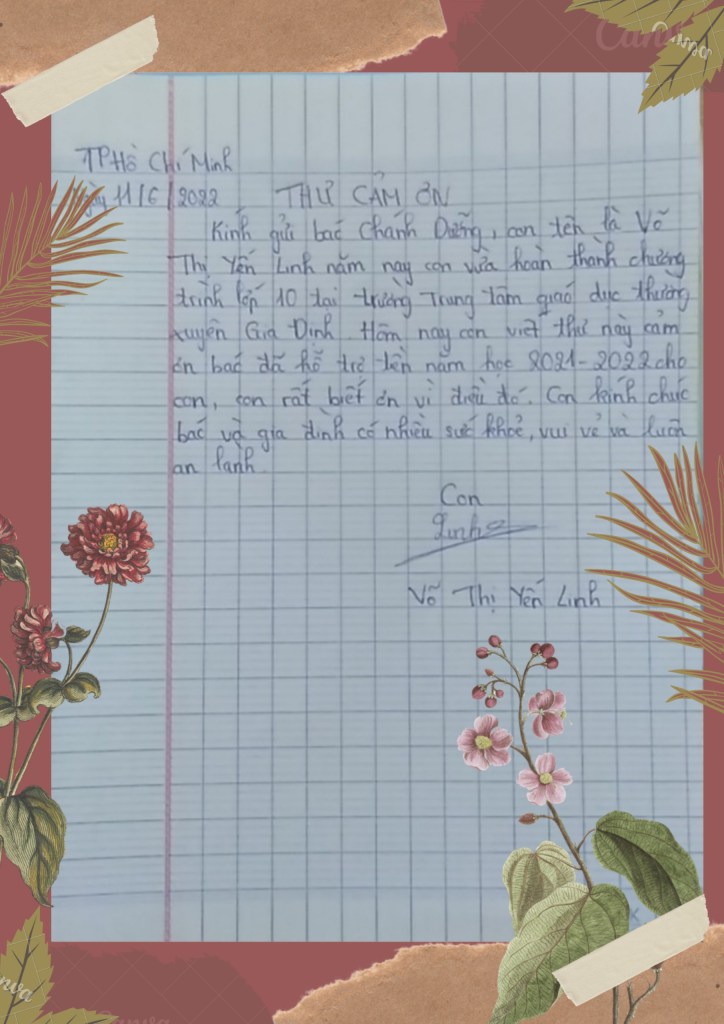 TP Hồ Chí Minh
Ngày 11/6/2022 THƯ CẢM ƠN
Kính gửi bác Chánh Dưỡng, con tên là Võ
Thị Yến Linh năm nay con vừa hoàn thành chương
trình lớp 10 tại trường Trung tâm giáo dục thường
xuyên Gia Định. Hôm nay con viết thư này cảm
ơn bác đã hỗ trợ tền năm học 2021-2022 cho
con, con rất biết ơn vì điều đó. Con kính chúc
bác và gia đình có nhiều sức khoẻ, vui vẻ và luôn
an lành.
Con
Linh
Võ Thị Yến Linh
Canva